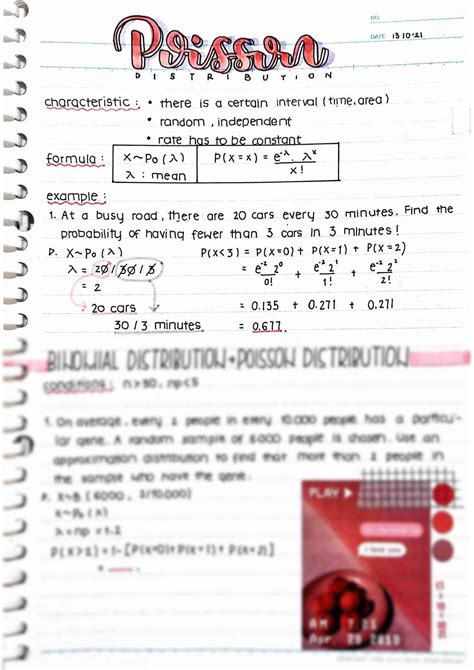 NO
DATE 13·10·21
Poisson
DISTRIBUTION
characteristic : • there is a certain interval (time, area)
• random, independent
• rate has to be constant
formula : X~Po(λ) P(X=x) = e^-λ . λ^x / x!
λ : mean
example :
1. At a busy road, there are 20 cars every 30 minutes. Find the
probability of having fewer than 3 cars in 3 minutes!
D. X~Po(λ) P(X<3) = P(X=0) + P(X=1) + P(X=2)
λ = 20/30/3 = e^-2 2^0 / 0! + e^-2 2^1 / 1! + e^-2 2^2 / 2!
= 2 = 0.135 + 0.271 + 0.271
20 cars = 0.677.
30/3 minutes
BINOMIAL DISTRIBUTION → POISSON DISTRIBUTION
conditions : n>50, np<5
1. On average, every 2 people in every 10.000 people has a particu-
lar gene. A random sample of 6000 people is chosen. Use an
approximation distribution to find that more than 2 people in
the sample who have the gene.
D. X~B(6000, 2/10.000)
X~Po(λ)
λ = np = 1.2
P(X>2) = 1-[P(X=0)+P(X=1)+P(X=2)]
PLAY
I love you
AM 7.21
Apr. 29 2013